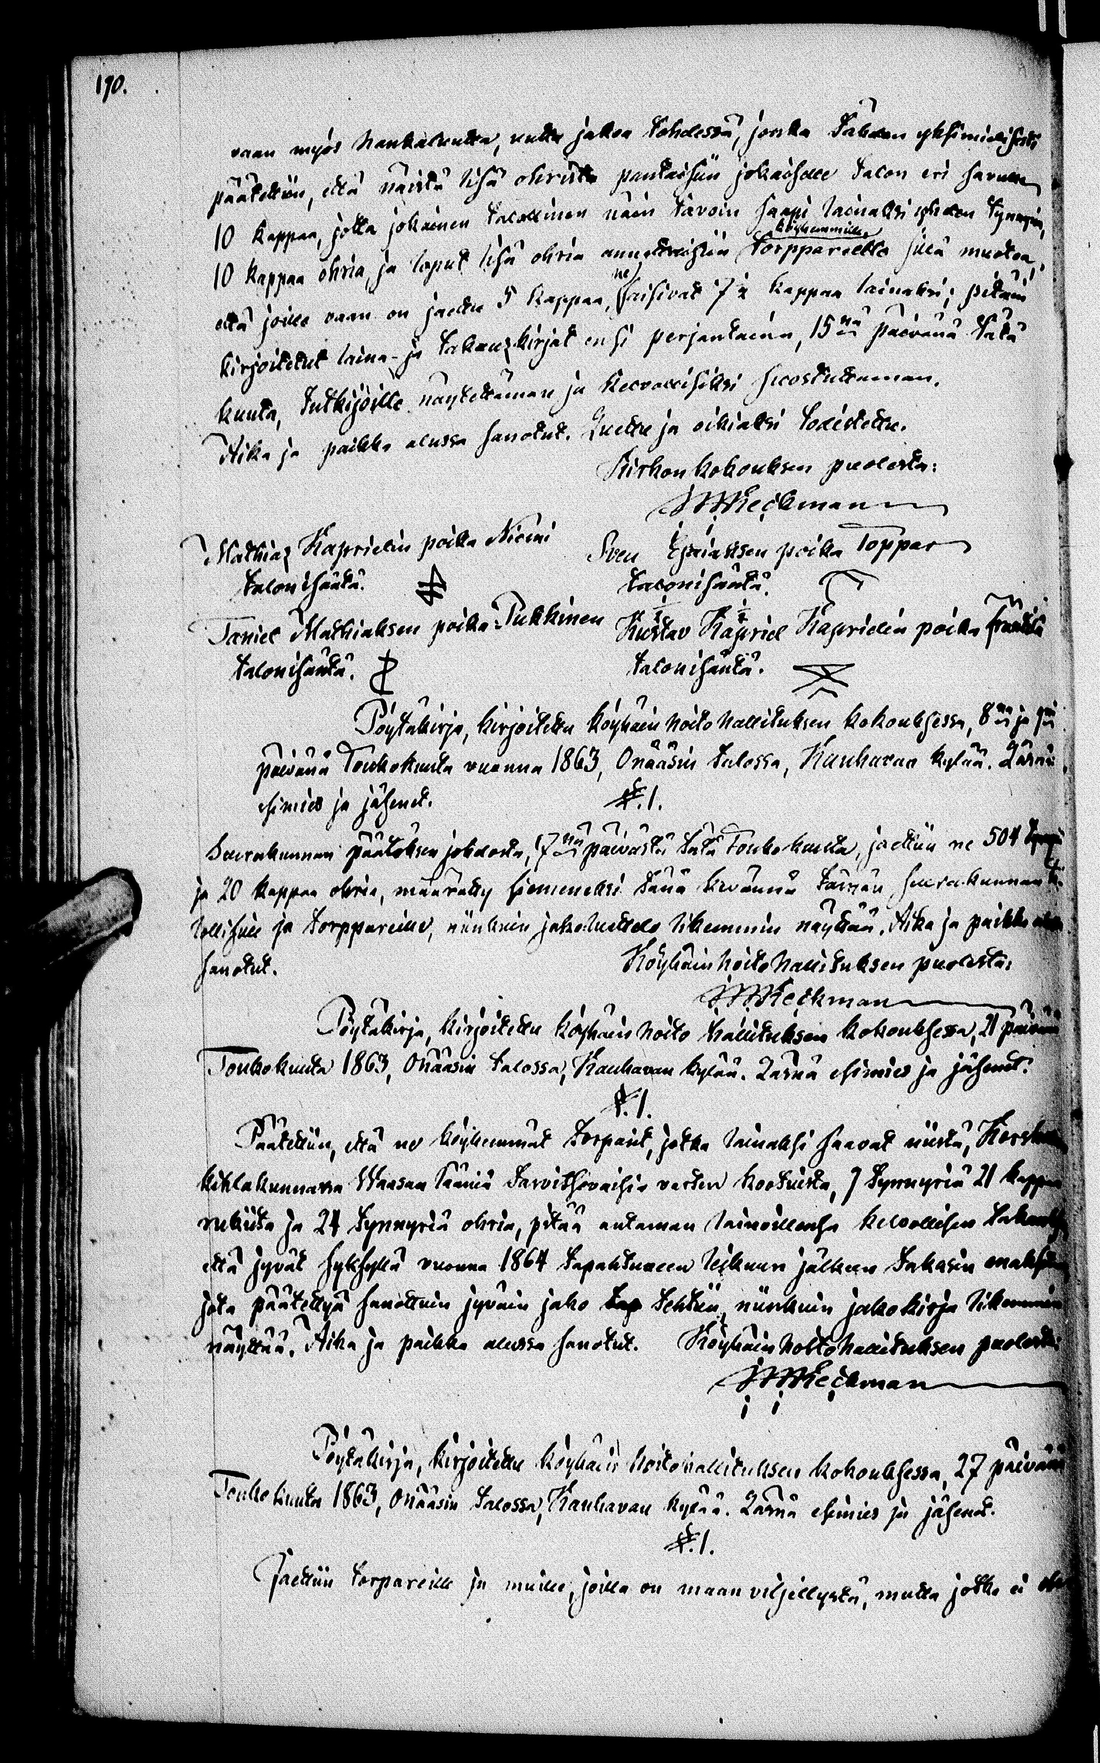 190.
vaan myös hankaluutta, uutta jakoa tehdessä, jonka tähden yksimielisesti
päätettiin, että näistä lisä ohrista pantaisiin jokaiselle talon eri savulle
10 kappaa, jotta jokainen talollinen näin tavoin saapi lainaksi yhden tynnyrin,
10 kappaa ohria, ja loput lisä ohria annettaisiin köyhemmille torppareille sillä muotoa,
että joille vaan on jaettu 5 kappaa, ne saisivat 7½ kappaa lainaksi; pitäin
kirjoitetut laina- ja takauskirjat ensi perjantaina, 15nä päivänä tätä
kuuta, tutkijoille näytettämän ja kelvollisiksi suostuttaman.
Aika ja paikka alussa sanotut. Luettu ja oikiaksi todistettu.
Kirkon kokouksen puolesta:
Reickman
Mathias Kaprielin poika Niemi
talonisäntä.
Sven Esaiaksen poika Toppar
talonisäntä.
Taniel Mathiaksen poika Pukkinen
talonisäntä.
Kustav Kapriel Kaprielin poika
talonisäntä.
Pöytäkirja, kirjoitettu köyhäin hoito hallituksen kokouksessa, 8nä ja 9nä
päivänä Toukokuuta vuonna 1863, Onääsin talossa, Kauhavan kylää. Läsnä
esimies ja jäsenet.
§.1.
Seurakunnan päätöksen johdosta, 7nä päivästä tätä Toukokuuta, jaettiin ne 504
ja 20 kappaa ohria, määrätty siemeneksi tänä keväännä tämän seurakunnan ta-
lollisille ja torppareille, niinkuin jakoluettelo likemmin näyttää. Aika ja paikka alussa
sanotut.
Köyhäinhoito hallituksen puolesta:
Reickman
Pöytäkirja, kirjoitettu köyhäin hoito hallituksen kokouksessa, 21 päivänä
Toukokuuta 1863, Onääsin talossa, Kauhavan kylää. Läsnä esimies ja jäsenet.
§.1.
Päätettiin, että ne köyhemmät torparit, jotka lainaksi saavat niistä,
kihlakunnassa Waasan lääniä tarvitsevaisia varten kootuista, 7 tynnyriä 21 kappaa
rukiita ja 24 tynnyriä ohria, pitää antaman lainoillensa kelvollisen takauksen
että jyvät syksyllä vuonna 1864 tapahtuneen leikkuun jälkeen takasin maksetaan
jota päätettyä sanottuin jyväin jako tehtiin, niinkuin jakokirja likemmin
näyttää. Aika ja paikka alussa sanotut. Köyhäin hoito hallituksen puolesta:
Reickman
Pöytäkirja, kirjoitettu köyhäin hoito hallituksen kokouksessa, 27 päivänä
Toukokuuta 1863, Onääsin talossa, Kauhavan kylää. Läsnä esimies ja jäsenet.
§.1.
Jaettiin torpareille ja muille, joilla on maan viljellystä, mutta jotka ei ole